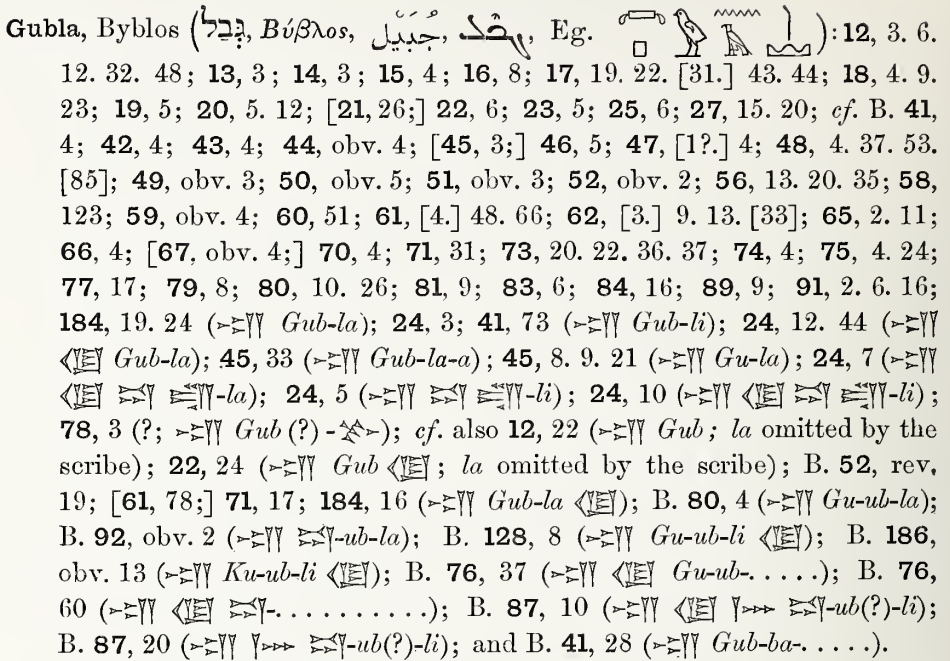 Gubla, Byblos (גְּבַל, Βύβλος, جُبَيْل, Eg. ): 12, 3. 6.
12. 32. 48; 13, 3; 14, 3; 15, 4; 16, 8; 17, 19. 22. [31.] 43. 44; 18, 4. 9.
23; 19, 5; 20, 5. 12; [21, 26;] 22, 6; 23, 5; 25, 6; 27, 15. 20; cf. B. 41,
4; 42, 4; 43, 4; 44, obv. 4; [45, 3;] 46, 5; 47, [1?.] 4; 48, 4. 37. 53.
[85]; 49, obv. 3; 50, obv. 5; 51, obv. 3; 52, obv. 2; 56, 13. 20. 35; 58,
123; 59, obv. 4; 60, 51; 61, [4.] 48. 66; 62, [3.] 9. 13. [33]; 65, 2. 11;
66, 4; [67, obv. 4;] 70, 4; 71, 31; 73, 20. 22. 36. 37; 74, 4; 75, 4. 24;
77, 17; 79, 8; 80, 10. 26; 81, 9; 83, 6; 84, 16; 89, 9; 91, 2. 6. 16;
184, 19. 24 (𒌷 Gub-la); 24, 3; 41, 73 (𒌷 Gub-li); 24, 12. 44 (𒌷
𒆠 Gub-la); 45, 33 (𒌷 Gub-la-a); 45, 8. 9. 21 (𒌷 Gu-la); 24, 7 (𒌷
𒆠 -la); 24, 5 (𒌷 -li); 24, 10 (𒌷 𒆠 -li);
78, 3 (?; 𒌷 Gub (?) - ); cf. also 12, 22 (𒌷 Gub; la omitted by the
scribe); 22, 24 (𒌷 Gub 𒆠; la omitted by the scribe); B. 52, rev,
19; [61, 78;] 71, 17; 184, 16 (𒌷 Gub-la 𒆠); B. 80, 4 (𒌷 Gu-ub-la);
B. 92, obv. 2 (𒌷 -ub-la); B. 128, 8 (𒌷 Gu-ub-li 𒆠); B. 186,
obv. 13 (𒌷 Ku-ub-li 𒆠); B. 76, 37 (𒌷 𒆠 Gu-ub-. . . . .); B. 76,
60 (𒌷 𒆠 -. . . . . . . . . .); B. 87, 10 (𒌷 𒆠 -ub(?)-li);
B. 87, 20 (𒌷 -ub(?)-li); and B. 41, 28 (𒌷 Gub-ba-. . . . .).